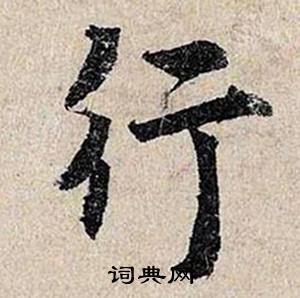 行
词典网